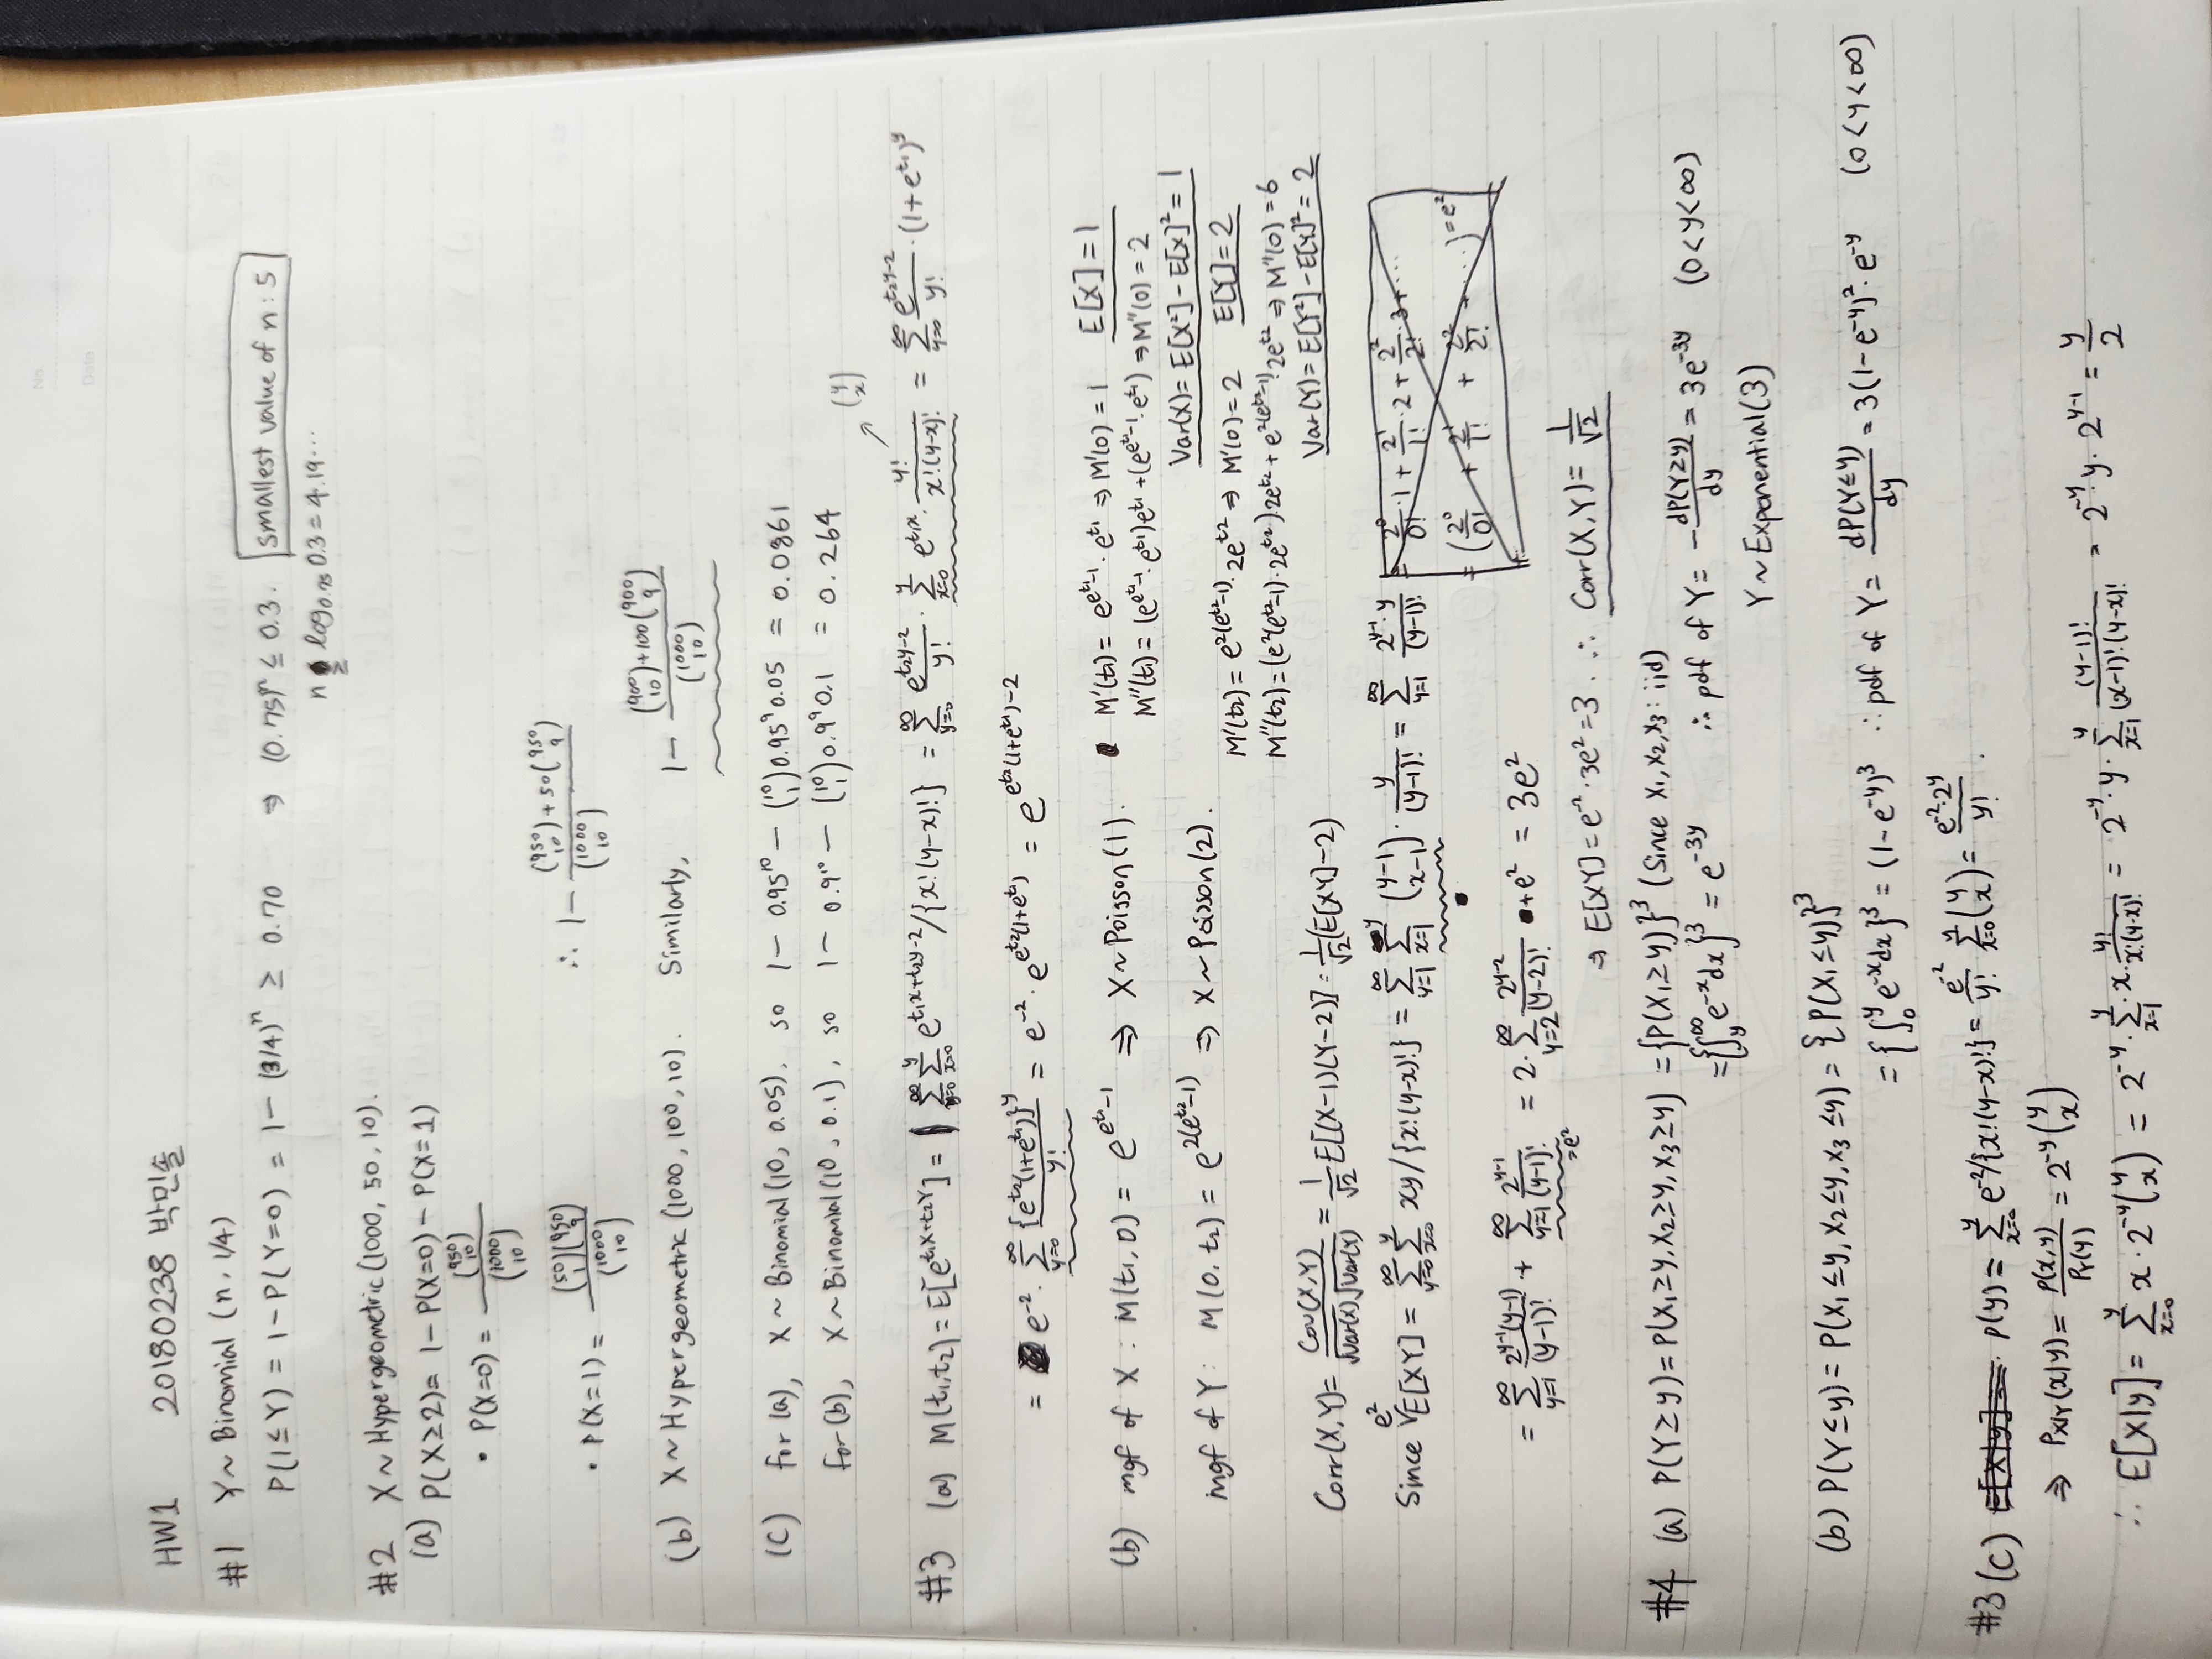 No.
Date
HW1 20180238 박민솔
#1 Y ~ Binomial (n, 1/4)
P(1 ≤ Y) = 1 - P(Y=0) = 1 - (3/4)^n ≥ 0.70 ⇒ (0.75)^n ≤ 0.3. smallest value of n : 5
n ≥ log_0.75 0.3 = 4.19...
#2 X ~ Hypergeometric (1000, 50, 10).
(a) P(X ≥ 2) = 1 - P(X=0) - P(X=1)
• P(X=0) = (950 10) / (1000 10)
• P(X=1) = (50 1)(950 9) / (1000 10) ∴ 1 - {(950 10) + 50 (950 9)} / (1000 10)
(b) X ~ Hypergeometric (1000, 100, 10). Similarly, 1 - {(900 10) + 100 (900 9)} / (1000 10)
(c) For (a), X ~ Binomial (10, 0.05), so 1 - 0.95^10 - (10 1) 0.95^9 0.05 = 0.0861
For (b), X ~ Binomial (10, 0.1), so 1 - 0.9^10 - (10 1) 0.9^9 0.1 = 0.264
(y x)
#3 (a) M(t1, t2) = E[e^{t1X+t2Y}] = ∑_{y=0}^∞ ∑_{x=0}^y e^{t1x+t2y-2}/{x!(y-x)!} = ∑_{y=0}^∞ e^{t2y-2}/y! · ∑_{x=0}^y e^{t1x} · y!/x!(y-x)! = ∑_{y=0}^∞ e^{t2y-2}/y! · (1+e^{t1})^y
= e^{-2} · ∑_{y=0}^∞ {e^{t2}(1+e^{t1})}^y / y! = e^{-2} · e^{e^{t2}(1+e^{t1})} = e^{e^{t2}(1+e^{t1})-2}
(b) mgf of X : M(t1, 0) = e^{e^{t1}-1} ⇒ X ~ Poisson (1). M'(t1) = e^{e^{t1}-1} · e^{t1} ⇒ M'(0) = 1 E[X] = 1
M''(t1) = (e^{e^{t1}-1} · e^{t1})e^{t1} + (e^{e^{t1}-1} · e^{t1}) ⇒ M''(0) = 2
Var(X) = E[X²] - E[X]² = 1
mgf of Y : M(0, t2) = e^{2(e^{t2}-1)} ⇒ X ~ Poisson (2). M'(t2) = e^{2(e^{t2}-1)} · 2e^{t2} ⇒ M'(0) = 2 E[Y] = 2
M''(t2) = (e^{2(e^{t2}-1)} · 2e^{t2}) · 2e^{t2} + e^{2(e^{t2}-1)} · 2e^{t2} ⇒ M''(0) = 6
Var(Y) = E[Y²] - E[Y]² = 2
Corr(X,Y) = Cov(X,Y) / √Var(X) √Var(Y) = 1/√2 E[(X-1)(Y-2)] = 1/√2 (E[XY]-2)
Since e² E[XY] = ∑_{y=0}^∞ ∑_{x=0}^y xy/{x!(y-x)!} = ∑_{y=1}^∞ ∑_{x=1}^y (y-1 x-1) · y/(y-1)! = ∑_{y=1}^∞ 2^{y-1}·y/(y-1)! = 2^0/0! · 1 + 2^1/1! · 2 + 2²/2! · 3 + ...
= (2^0/0! + 2^1/1! + 2²/2! + ...) = e²
= ∑_{y=1}^∞ 2^{y-1}(y-1)/(y-1)! + ∑_{y=1}^∞ 2^{y-1}/(y-1)! = 2 · ∑_{y=2}^∞ 2^{y-2}/(y-2)! + e² = 3e²
= e²
⇒ E[XY] = e^{-2} · 3e² = 3 ∴ Corr(X,Y) = 1/√2
#4 (a) P(Y ≥ y) = P(X1 ≥ y, X2 ≥ y, X3 ≥ y) = {P(X1 ≥ y)}³ (Since X1, X2, X3 : iid)
= {∫_y^∞ e^{-x} dx}³ = e^{-3y} ∴ pdf of Y = - dP(Y≥y)/dy = 3e^{-3y} (0<y<∞)
Y ~ Exponential (3)
(b) P(Y ≤ y) = P(X1 ≤ y, X2 ≤ y, X3 ≤ y) = {P(X1 ≤ y)}³
= {∫_0^y e^{-x} dx}³ = (1-e^{-y})³ ∴ pdf of Y = dP(Y≤y)/dy = 3(1-e^{-y})² · e^{-y} (0<y<∞)
#3 (c) E[X|y] = P(y) = ∑_{x=0}^y e^{-2}/{x!(y-x)!} = e^{-2}/y! ∑_{x=0}^y (y x) = e^{-2}·2^y/y! .
⇒ P_{X|Y}(x|y) = P(x,y)/P_Y(y) = 2^{-y} (y x)
∴ E[X|y] = ∑_{x=0}^y x · 2^{-y} (y x) = 2^{-y} · ∑_{x=1}^y x · y!/x!(y-x)! = 2^{-y} · y · ∑_{x=1}^y (y-1)!/(x-1)!(y-x)! = 2^{-y} · y · 2^{y-1} = y/2